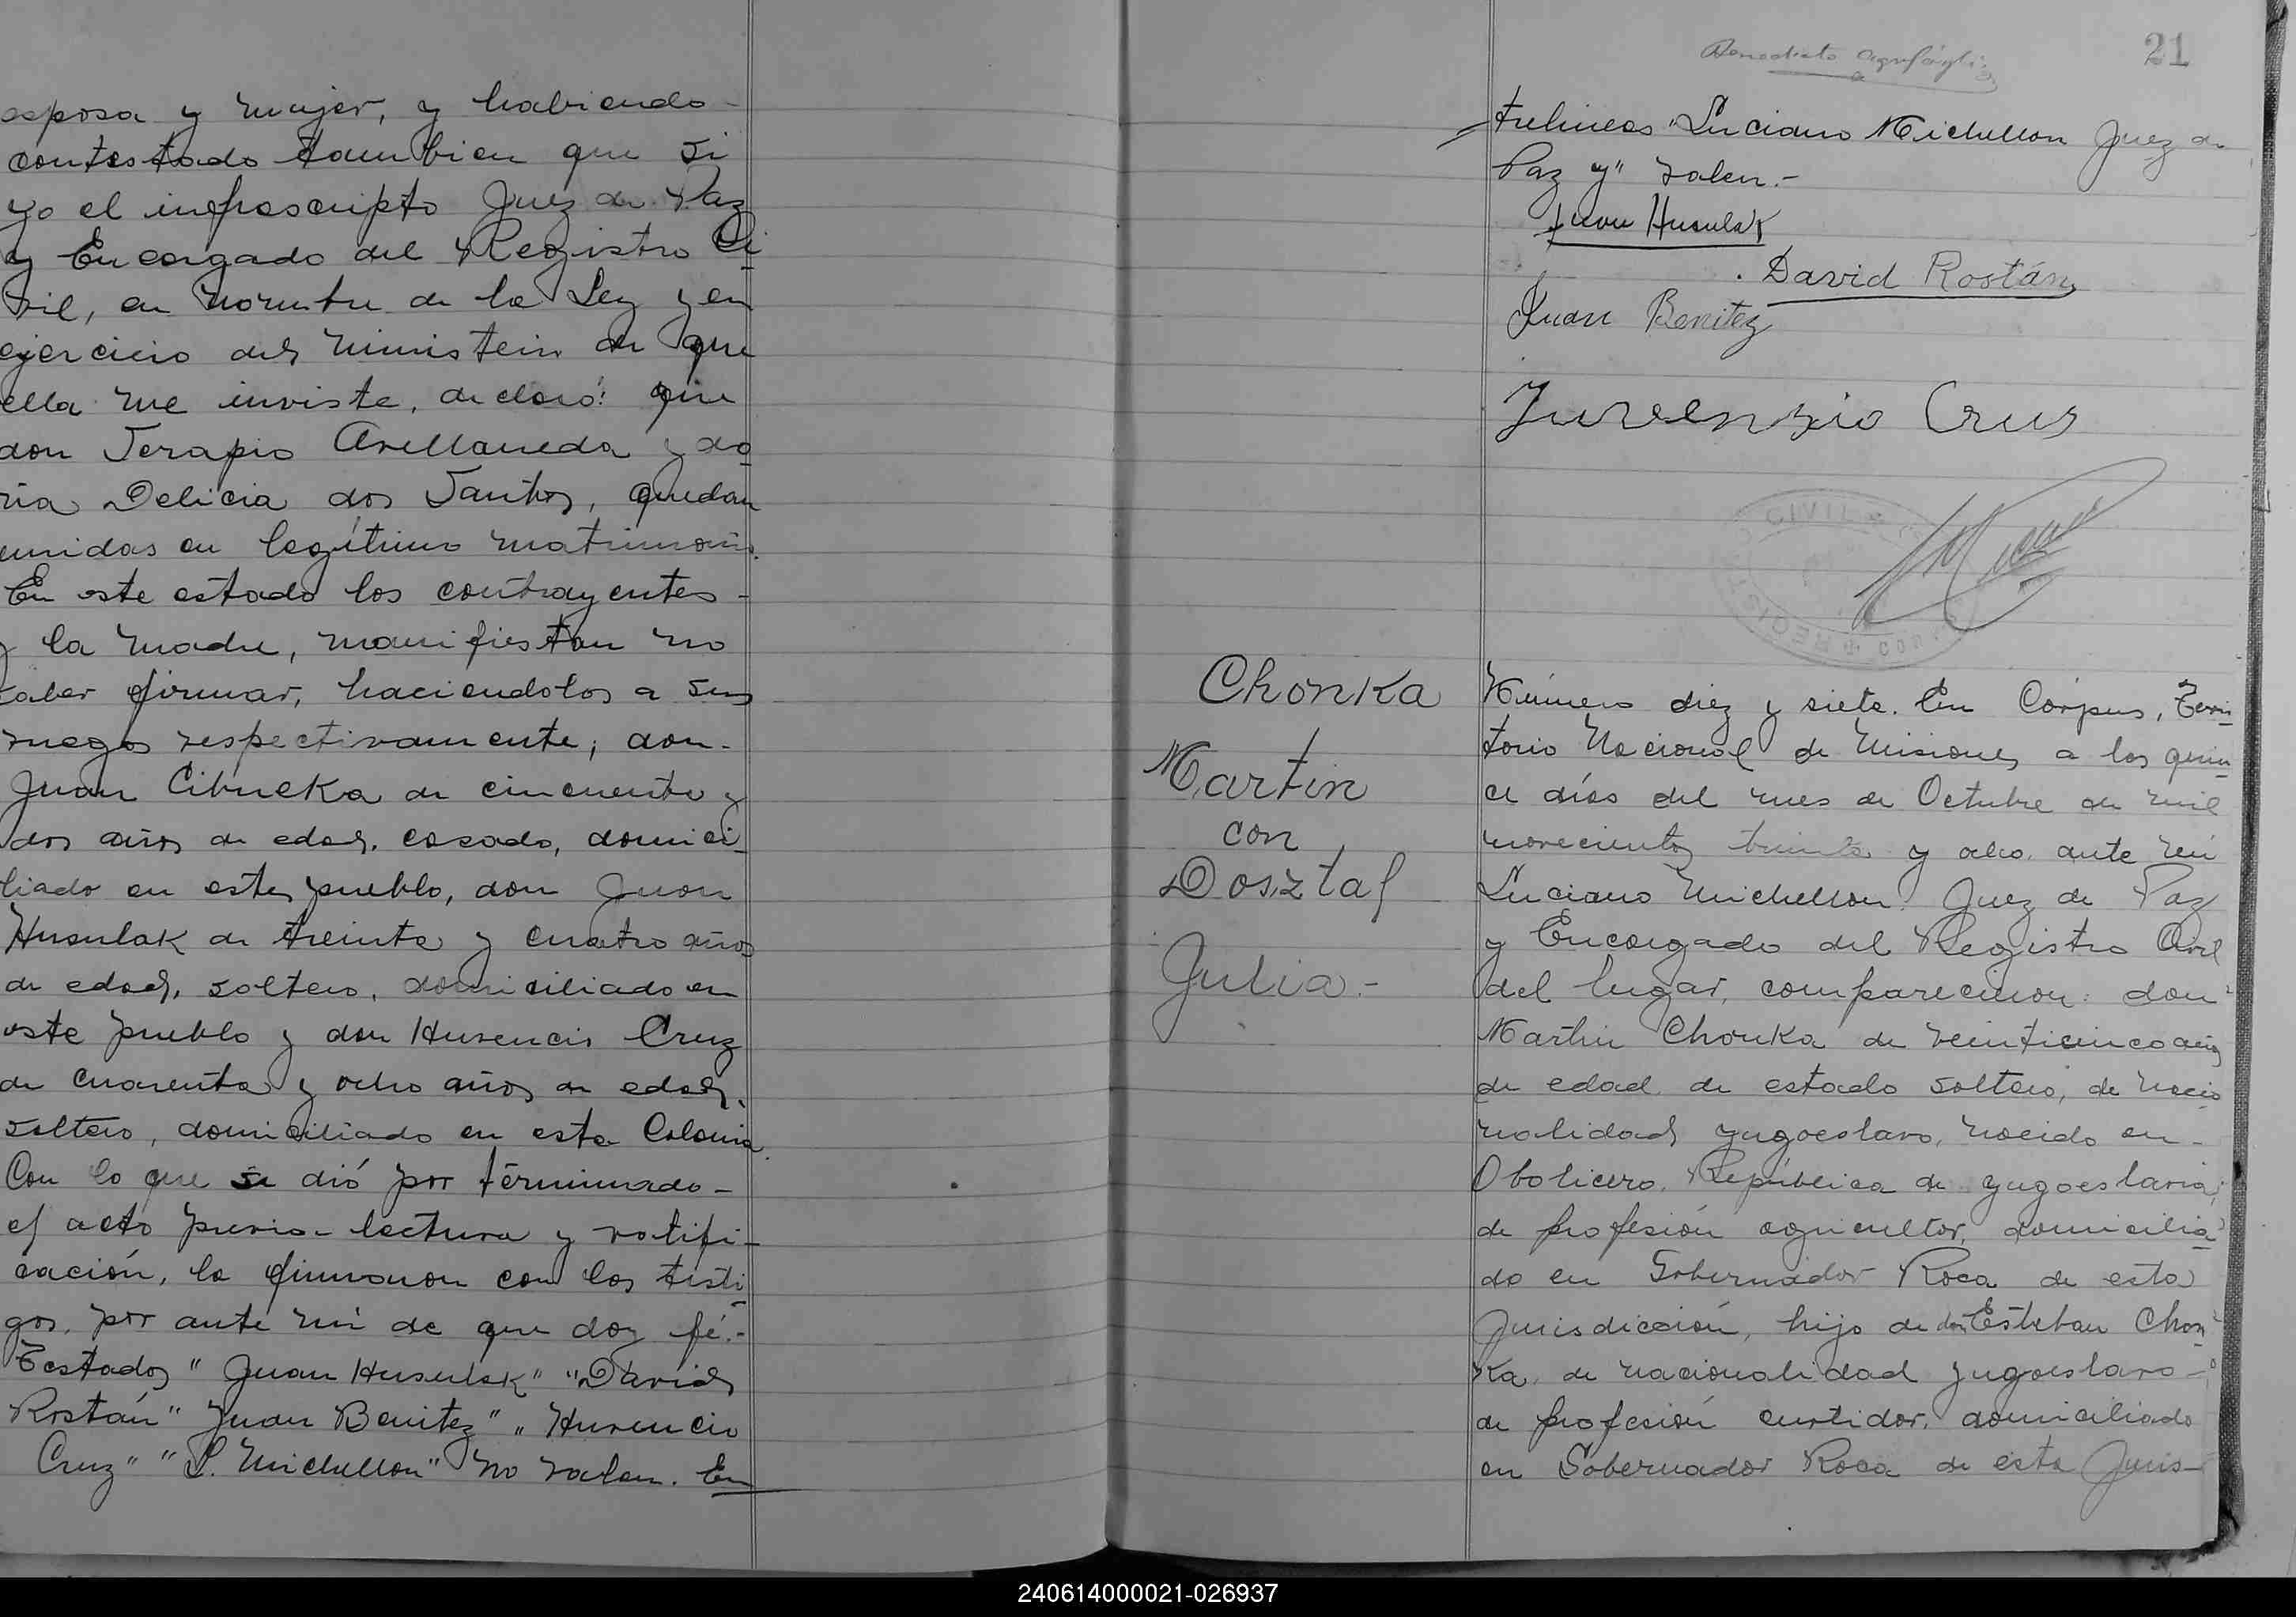 esposa y mujer, y habiendo-
contestado tambien que si
yo el infrascripto Juez de Paz
y Encargado del Registro Ci
vil, en nombre de la Ley y en
ejercicio del ministerio de que
ella me inviste, declaro: que
don Serapio Avellaneda y do
ña Delicia dos Santos, quedan
unidos en legítimo matrimonio.
En este estado los contrayentes-
y la madre, manifiestan no
saber firmar, haciendolos a sus
ruegos respectivamente; don-
Juan Cibucka de cincuenta y
dos años de edad, casado, domici
liado en este pueblo, don Juan
Husulak de treinta y cuatro años
de edad, soltero, domiciliado en
este pueblo y don Huvencio Cruz
de cuarenta y ocho años de edad,
soltero, domiciliado en esta Colonia.
Con lo que se dió por términado-
el acto previa-lectura y ratifi-
cación, la firmaron con los testi
gos, por ante mi de que doy fé.-
Testados "Juan Husulak" "David
Rostán" "Juan Benitez" "Huvencio
Cruz" "L. Michellon" no valen. En
21
Benedicto
trelineas "Luciano Michellon Juez de
Paz y" valen.-
Juan Husulak
David Rostán
Juan Benitez
Juvenzio Crus
CIVIL
REGISTRO
Chonka
Martin
con
Dosztal
Julia.-
Número diez y siete. En Córpus, Terri
torio Nacional de Misiones a los quin
ce días del mes de Octubre de mil
novecientos treinta y ocho, ante mi
Luciano Michellon Juez de Paz
y Encargado del Registro Civil
del lugar, comparecieron: don
Martin Chonka de veinticinco años
de edad, de estado soltero, de nacio
nalidad yugoeslavo, nacido en-
Obolicero, República de yugoeslavia,
de profesión agricultor, domicilia
do en Gobernador Roca de esta
Jurisdicción, hijo de don Esteban Chon
ka, de nacionalidad yugoeslavo-
de profesión curtidor, domiciliado
en Gobernador Roca de esta Juris-
240614000021-026937